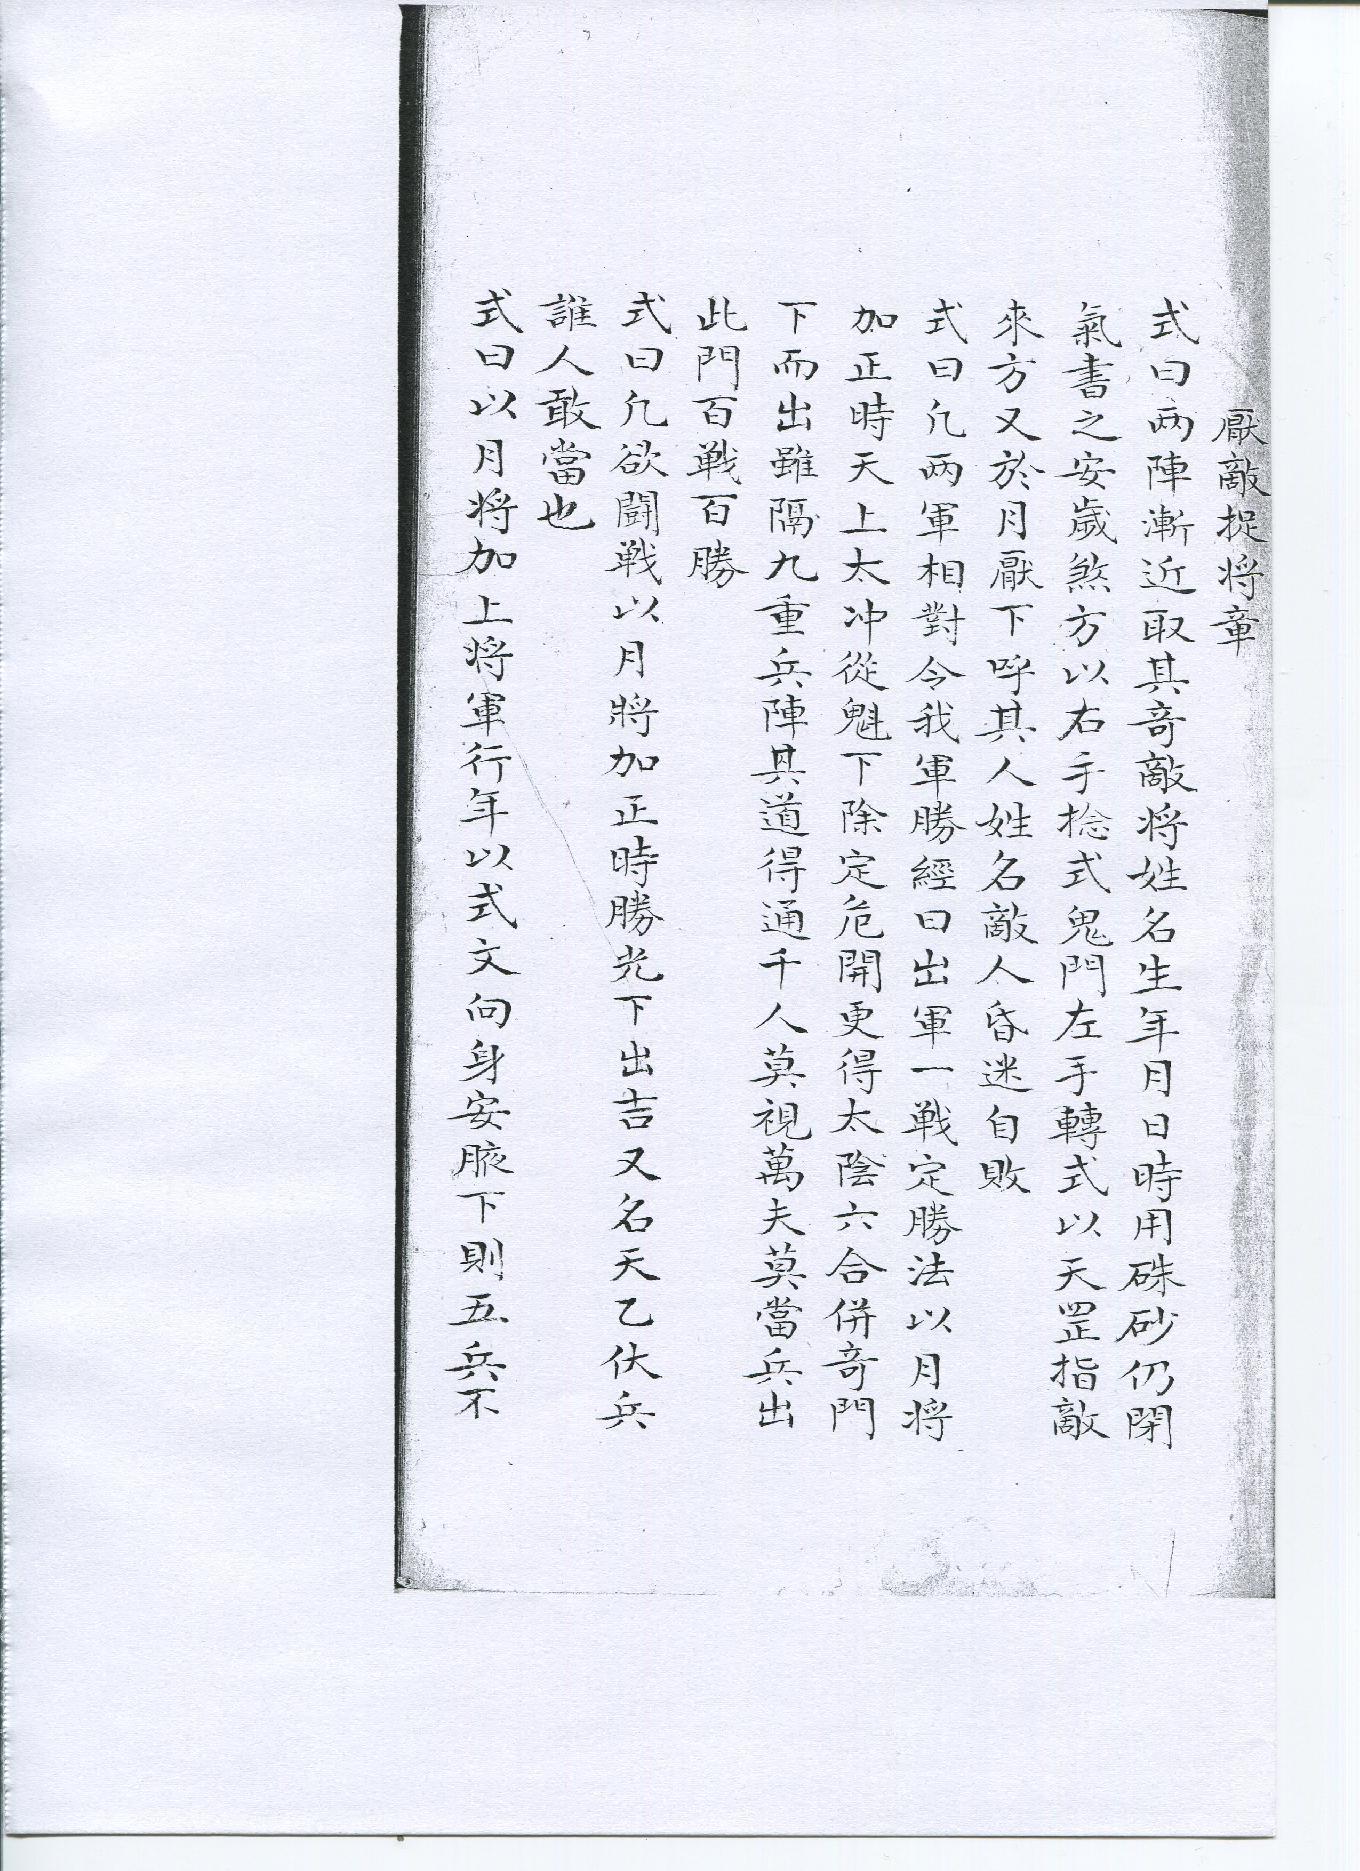 厭敵捉将章
式曰两陣漸近取其竒敵将姓名生年月日時用硃砂仍閉
氣書之安歲煞方以右手捻式鬼門左手轉式以天罡指敵
來方又於月厭下呼其人姓名敵人昏迷自敗
式曰凢两軍相對令我軍勝經曰出軍一戦定勝法以月将
加正時天上太冲從魁下除定危開更得太陰六合併竒門
下而出雖隔九重兵陣其道得通千人莫視萬夫莫當兵出
此門百戦百勝
式曰凢欲闘戦以月將加正時勝光下出吉又名天乙伏兵
誰人敢當也
式曰以月将加上将軍行年以式文向身安腋下則五兵不